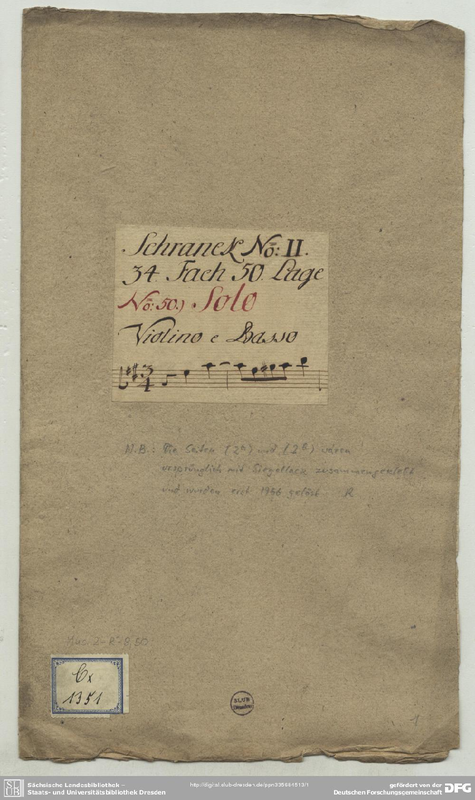 Schranck No: II.
34 Fach 50 Lage
No: 50.) Solo
Violino e Basso
3
4
N.B.: Die Seiten (2a) und (2b) waren
ursprünglich mit Siegellack zusammengeklebt
und wurden erst 1966 gelöst. R
Cx
1351
SLUB
1
Sächsische Landesbibliothek -
Staats- und Universitätsbibliothek Dresden
http://digital.slub-dresden.de/
gefördert von der
Deutschen Forschungsgemeinschaft
DFG